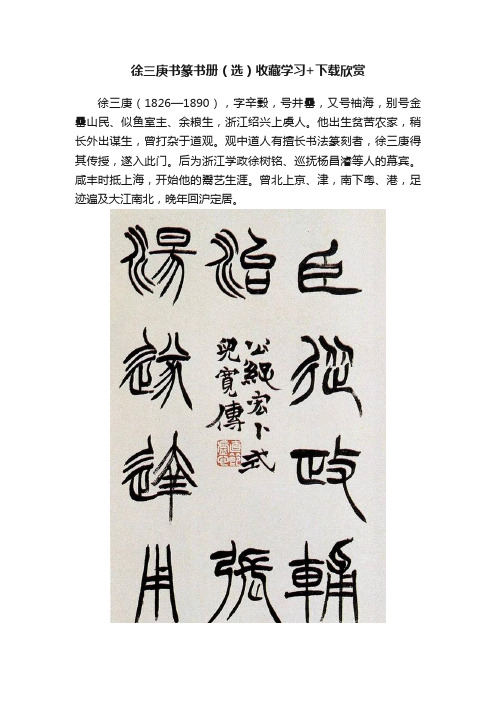 徐三庚书篆书册（选）收藏学习+下载欣赏
徐三庚（1826—1890），字辛榖，号井罍，又号袖海，别号金
罍山民、似鱼室主、余粮生，浙江绍兴上虞人。他出生贫苦农家，稍
长外出谋生，曾打杂于道观。观中道人有擅长书法篆刻者，徐三庚得
其传授，遂入此门。后为浙江学政徐树铭、巡抚杨昌濬等人的幕宾。
咸丰时抵上海，开始他的鬻艺生涯。曾北上京、津，南下粤、港，足
迹遍及大江南北，晚年回沪定居。
臣從政輔
治
公孫宏卜式
兒寬傳
張
湯遂達用